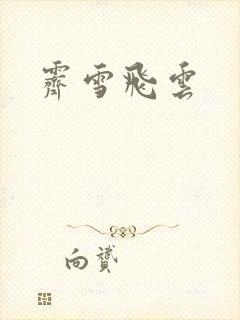 霽雪飛雲
向贇